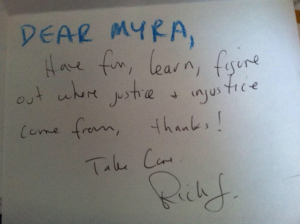 DEAR MYRA,
Have fun, learn, figure
out where justice + injustice
come from, thanks!
Take Care
Rich J.